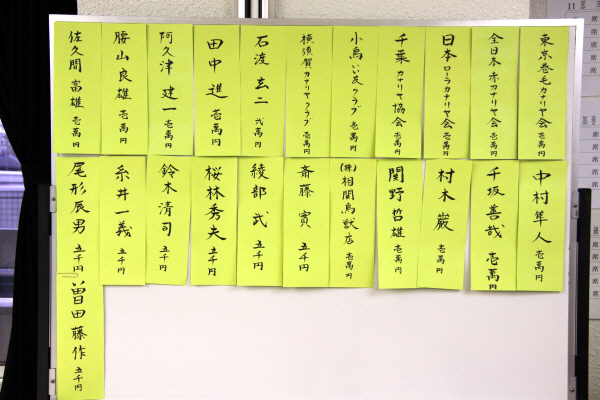 東京巻毛カナリヤ会 壱萬円
全日本赤カナリヤ会 壱萬円
日本ローラカナリヤ会 壱萬円
千葉カナリヤ協会 壱萬円
小鳥いい友クラブ 壱萬円
横須賀カナリヤクラブ 壱萬円
石渡玄二 弐萬円
田中進 壱萬円
阿久津建一 壱萬円
腰山良雄 壱萬円
佐久間富雄 壱萬円
中村隼人 壱萬円
千坂善哉 壱萬円
村木巌 壱萬円
関野哲雄 壱萬円
(株)相関鳥獣店 壱萬円
斎藤實 五千円
綾部武 五千円
桜林秀夫 五千円
鈴木清司 五千円
糸井一義 五千円
尾形辰男 五千円
曽田藤作 五千円
11
席
席
席
席
席
席
席
席